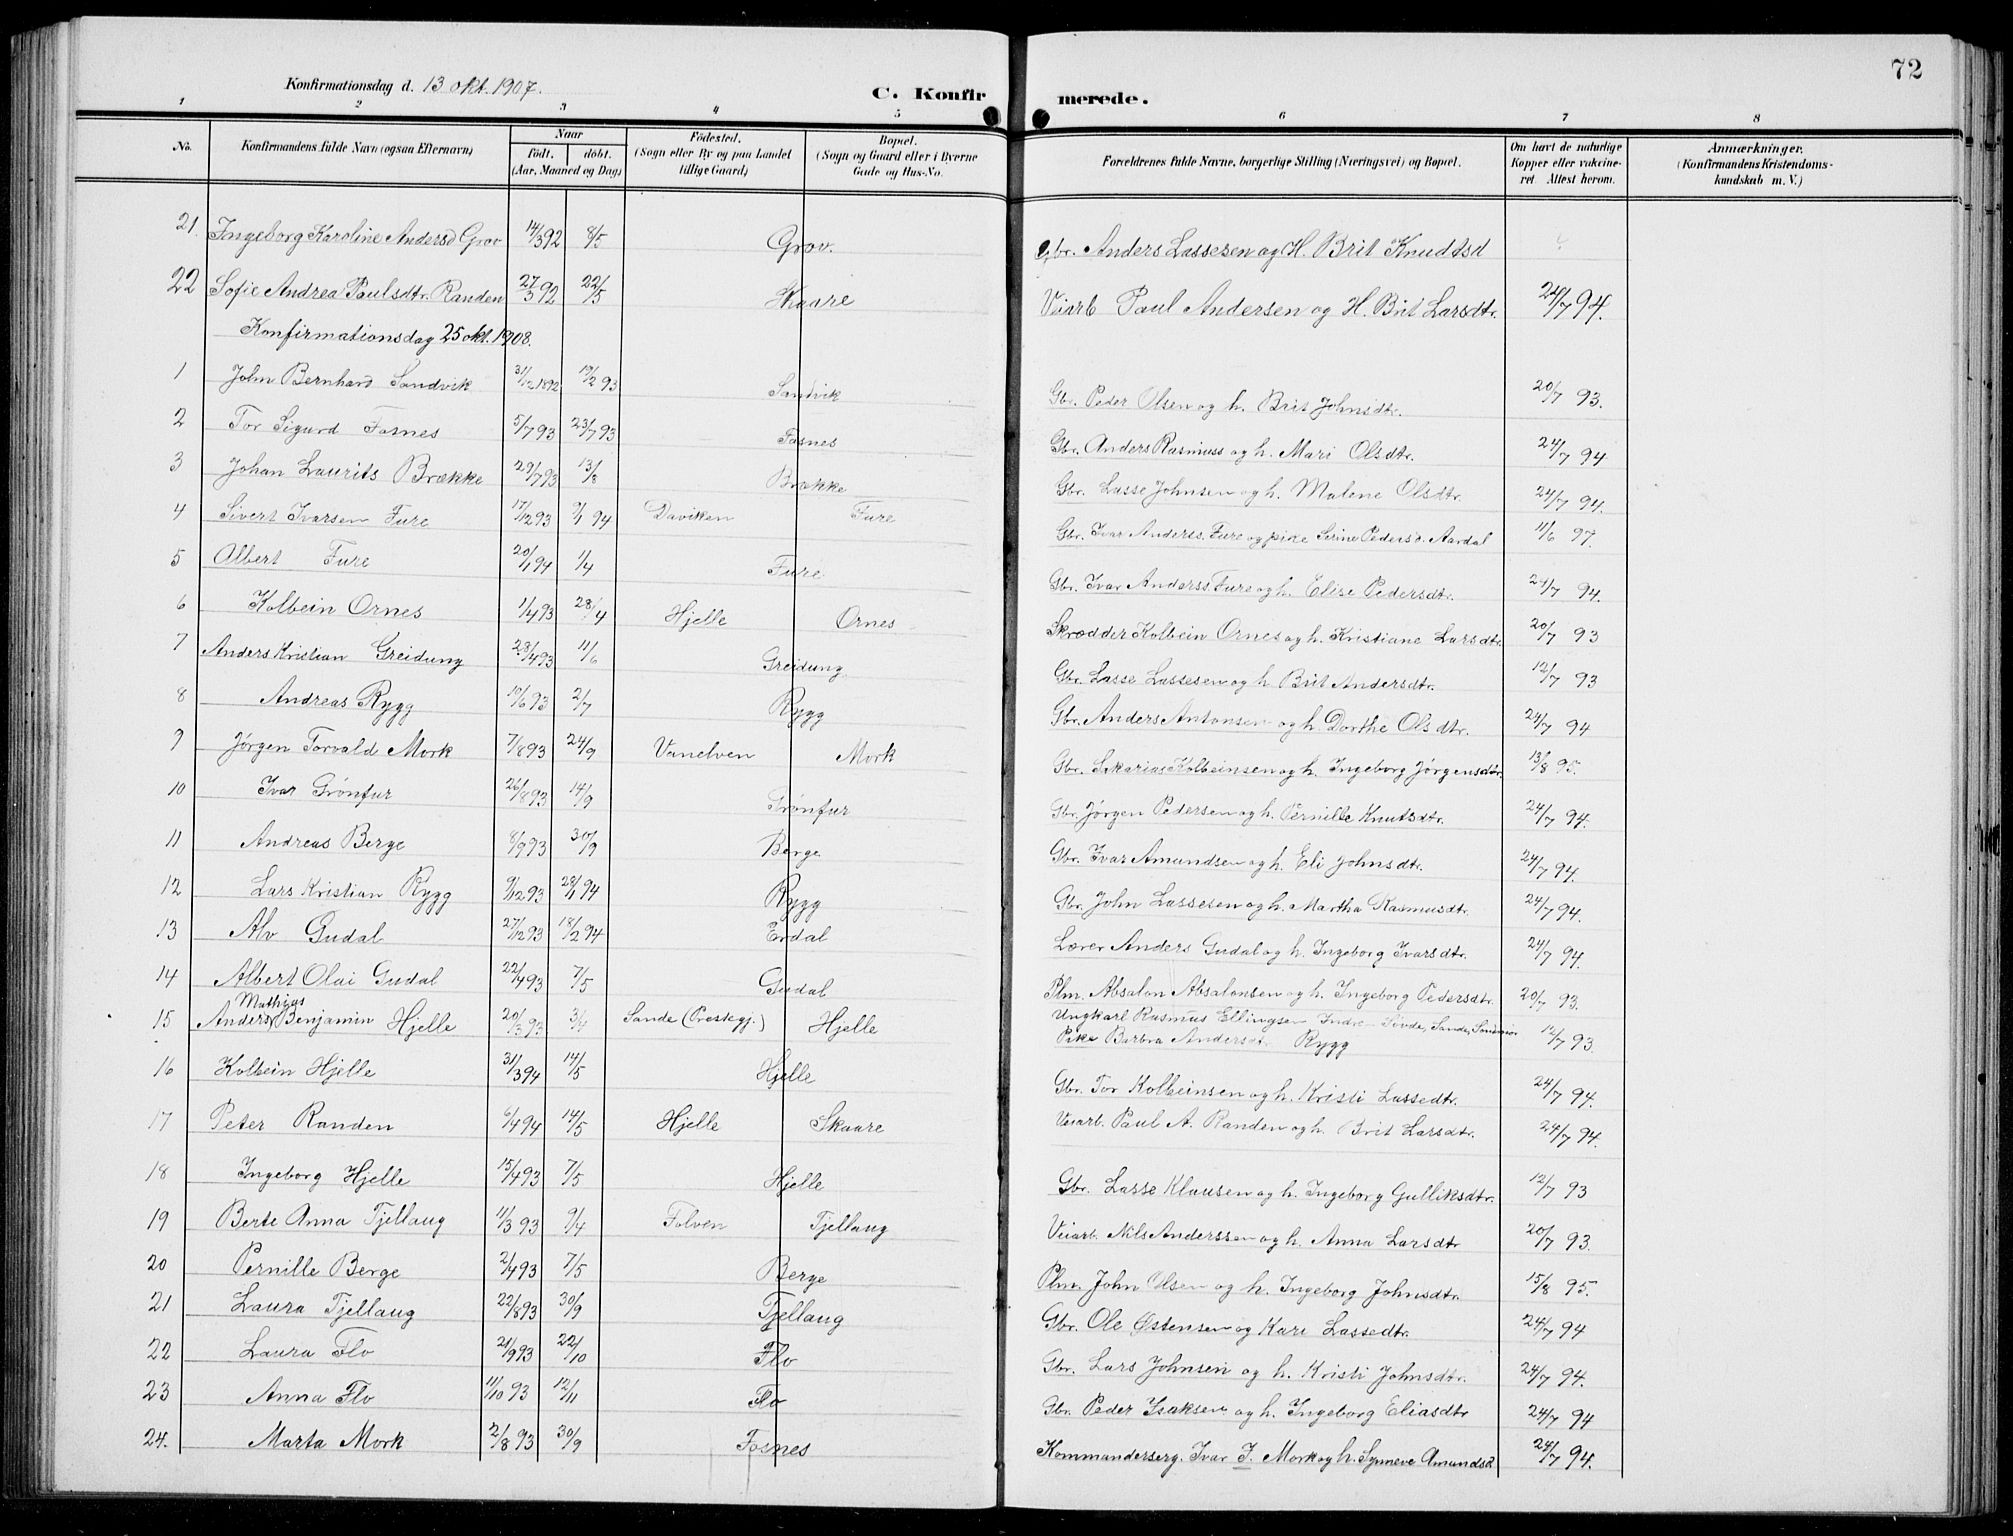 72
Konfirmationsdag d. 13 okt. 1907.
C. Konfirmerede.
1 2 3 4 5 6 7 8
No. Konfirmandens fulde Navn (ogsaa Efternavn) Naar födt. döbt. (Aar, Maaned og Dag) Födested. (Sogn eller By og paa Landet tillige Gaard) Bopæl. (Sogn og Gaard eller i Byerne Gade og Hus-No. Forældrenes fulde Navne, borgerlige Stilling (Næringsvei) og Bopæl. Om havt de naturlige Kopper eller vakcineret. Attest herom. Anmærkninger. (Konfirmandens Kristendomskundskab m. V.)
21. Ingeborg Karoline Andersd Grov 14/3 92 8/5 Grov. Gbr. Anders Lassesen og H. Brit Knudtsd
22 Sofie Andrea Paulsdtr. Randen 27/3 92 22/5 Skaare Veiarb Paul Andersen og H. Brit Larsdtr. 24/7 94.
Konfirmationsdag 25 okt. 1908.
1 John Bernhard Sandvik 31/12 1892 19/2 93 Sandvik Gbr. Peder Olsen og h. Brit Johnsdtr. 20/7 93.
2 Tor Sigurd Fosnes 5/7 93 23/7 93 Fosnes Gbr. Anders Rasmuss og h. Mari Olsdtr. 24/7 94
3 Johan Laurits Brække 29/7 93 13/8 Brække Gbr. Lasse Johnsen og h. Malene Olsdtr. 24/7 94.
4 Sivert Ivarsen Fure 17/12 93 9/1 94 Daviken Fure Gbr. Ivar Anderss. Fure og pike Serine Pedersd. Aardal 11/6 97.
5 Albert Fure 20/1 94 1/4 Fure Gbr. Ivar Anderss Fure og h. Elise Pedersdtr. 24/7 94.
6 Kolbein Ornes 1/4 93 28/4 Hjelle Ornes Skrædder Kolbein Ornes og h. Kristiane Larsdtr 20/7 93
7 Anders Kristian Greidung 28/4 93 11/6 Greidung Gbr. Lasse Lassesen og h Brit Andersdtr. 12/7 93
8 Andreas Rygg 10/6 93 2/7 Rygg Gbr. Anders Antonsen og h. Dorthe Olsdtr. 24/7 94
9 Jørgen Torvald Mork 7/8 93 24/9 Vanelven Mork Gbr. Sakarias Kolbeinsen og h. Ingeborg Jørgensdtr. 13/8 95.
10 Ivar Grønfur 26/8 93 14/9 Grønfur Gbr. Jørgen Pedersen og h. Pernille Knutsdtr. 24/7 94.
11 Andreas Berge 8/9 93 30/9 Berge Gbr. Ivar Amundsen og h. Eli Johnsdtr. 24/7 94.
12 Lars Kristian Rygg 9/12 93 28/1 94 Rygg Gbr. John Lassesen og h. Martha Rasmusdtr. 24/7 94.
13 Alv Gudal 27/12 93 18/2 94 Erdal Lærer Anders Gudal og h. Ingeborg Ivarsdtr. 24/7 94.
14 Albert Olai Gudal 22/4 93 7/5 Gudal Plm. Absalon Absalonsen og h. Ingeborg Pedersdtr. 20/7 93.
15 Anders Mathias Benjamin Hjelle 20/3 93 3/4 Sande (Prestegj.) Hjelle Ungkarl Rasmus Ellingsen Indre Søvde, Sande, Søndmør
Pike Barbra Andersd. Rygg 12/7 93.
16 Kolbein Hjelle 31/3 94 14/5 Hjelle Gbr. Tor Kolbeinsen og h. Kristi Lassedtr. 24/7 94.
17 Peter Randen 6/4 94 14/5 Hjelle Skaare Veiarb. Paul A. Randen og h. Brit Larsdtr. 24/7 94.
18 Ingeborg Hjelle 15/4 93 7/5 Hjelle Gbr. Lasse Klausen og h. Ingeborg Gulliksdtr. 12/7 93
19 Berte Anna Tjellaug 11/3 93 9/4 Folven Tjellaug Veiarb. Nils Anderssen og h. Anna Larsdtr 20/7 93.
20 Pernille Berge 2/4 93 7/5 Berge Plm. John Olsen og h. Ingeborg Johnsdtr. 15/8 95.
21 Laura Tjellaug 22/8 93 30/9 Tjellaug Gbr. Ole Østensen og Kari Lassedtr. 24/7 94
22 Laura Flo 21/9 93 22/10 Flo Gbr. Lars Johnsen og h. Kristi Johnsdtr. 24/7 94.
23 Anna Flo 11/10 93 12/11 Flo Gbr. Peder Isaksen og h. Ingeborg Eliasdtr 24/7 94
24. Marta Mork 2/8 93 30/9 Fosnes Kommanderserg. Ivar J. Mork og h. Synneve Amundsd. 24/7 94.